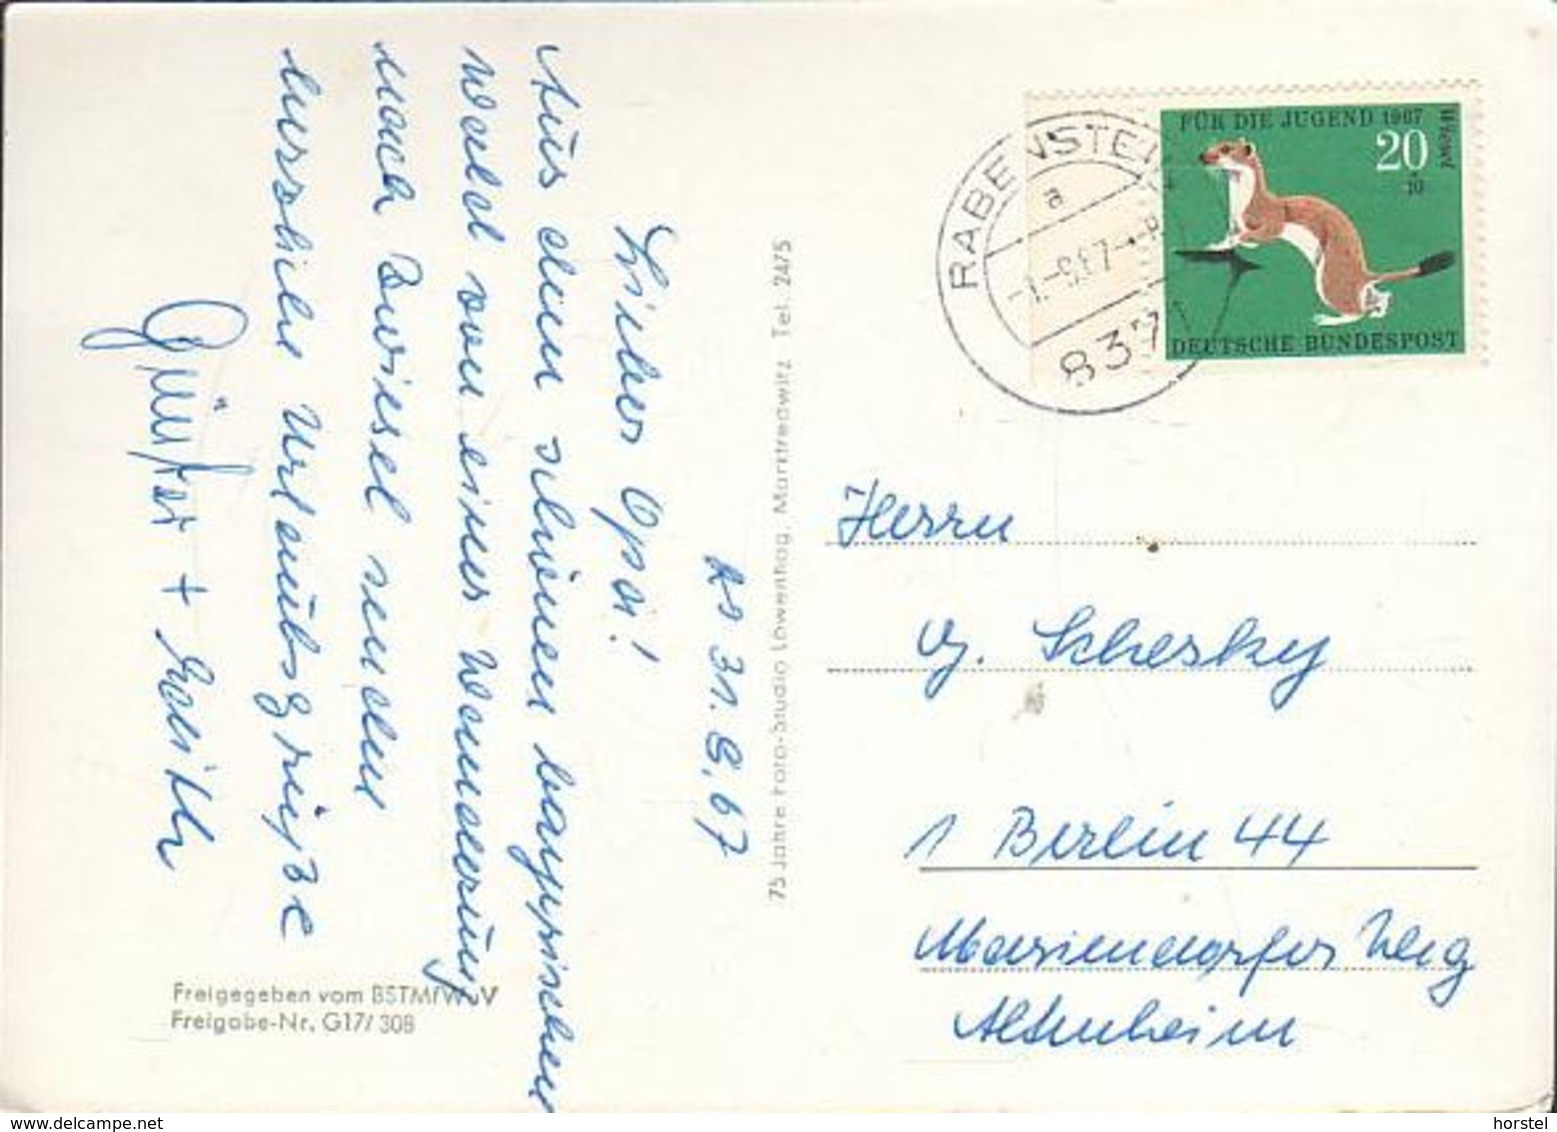 FÜR DIE JUGEND 1967
20
+10
Wiesel
DEUTSCHE BUNDESPOST
RABENSTEI
a
-1.-9.67-
837
75 Jahre Foto-Studio Löwenhag, Marktredwitz Tel. 2475
31.8.67
Lieber Opa!
Aus dem schönen bayrischen
Wald von einer Wanderung
nach Zwiesel senden
herzliche Urlaubsgrüße
Günter + Edith
Freigegeben vom BSTMfWuV
Freigabe-Nr. G17/308
Herrn
G. Schersky
1 Berlin 44
Mariendorfer Weg
Altenheim
www.delcampe.net
horstel